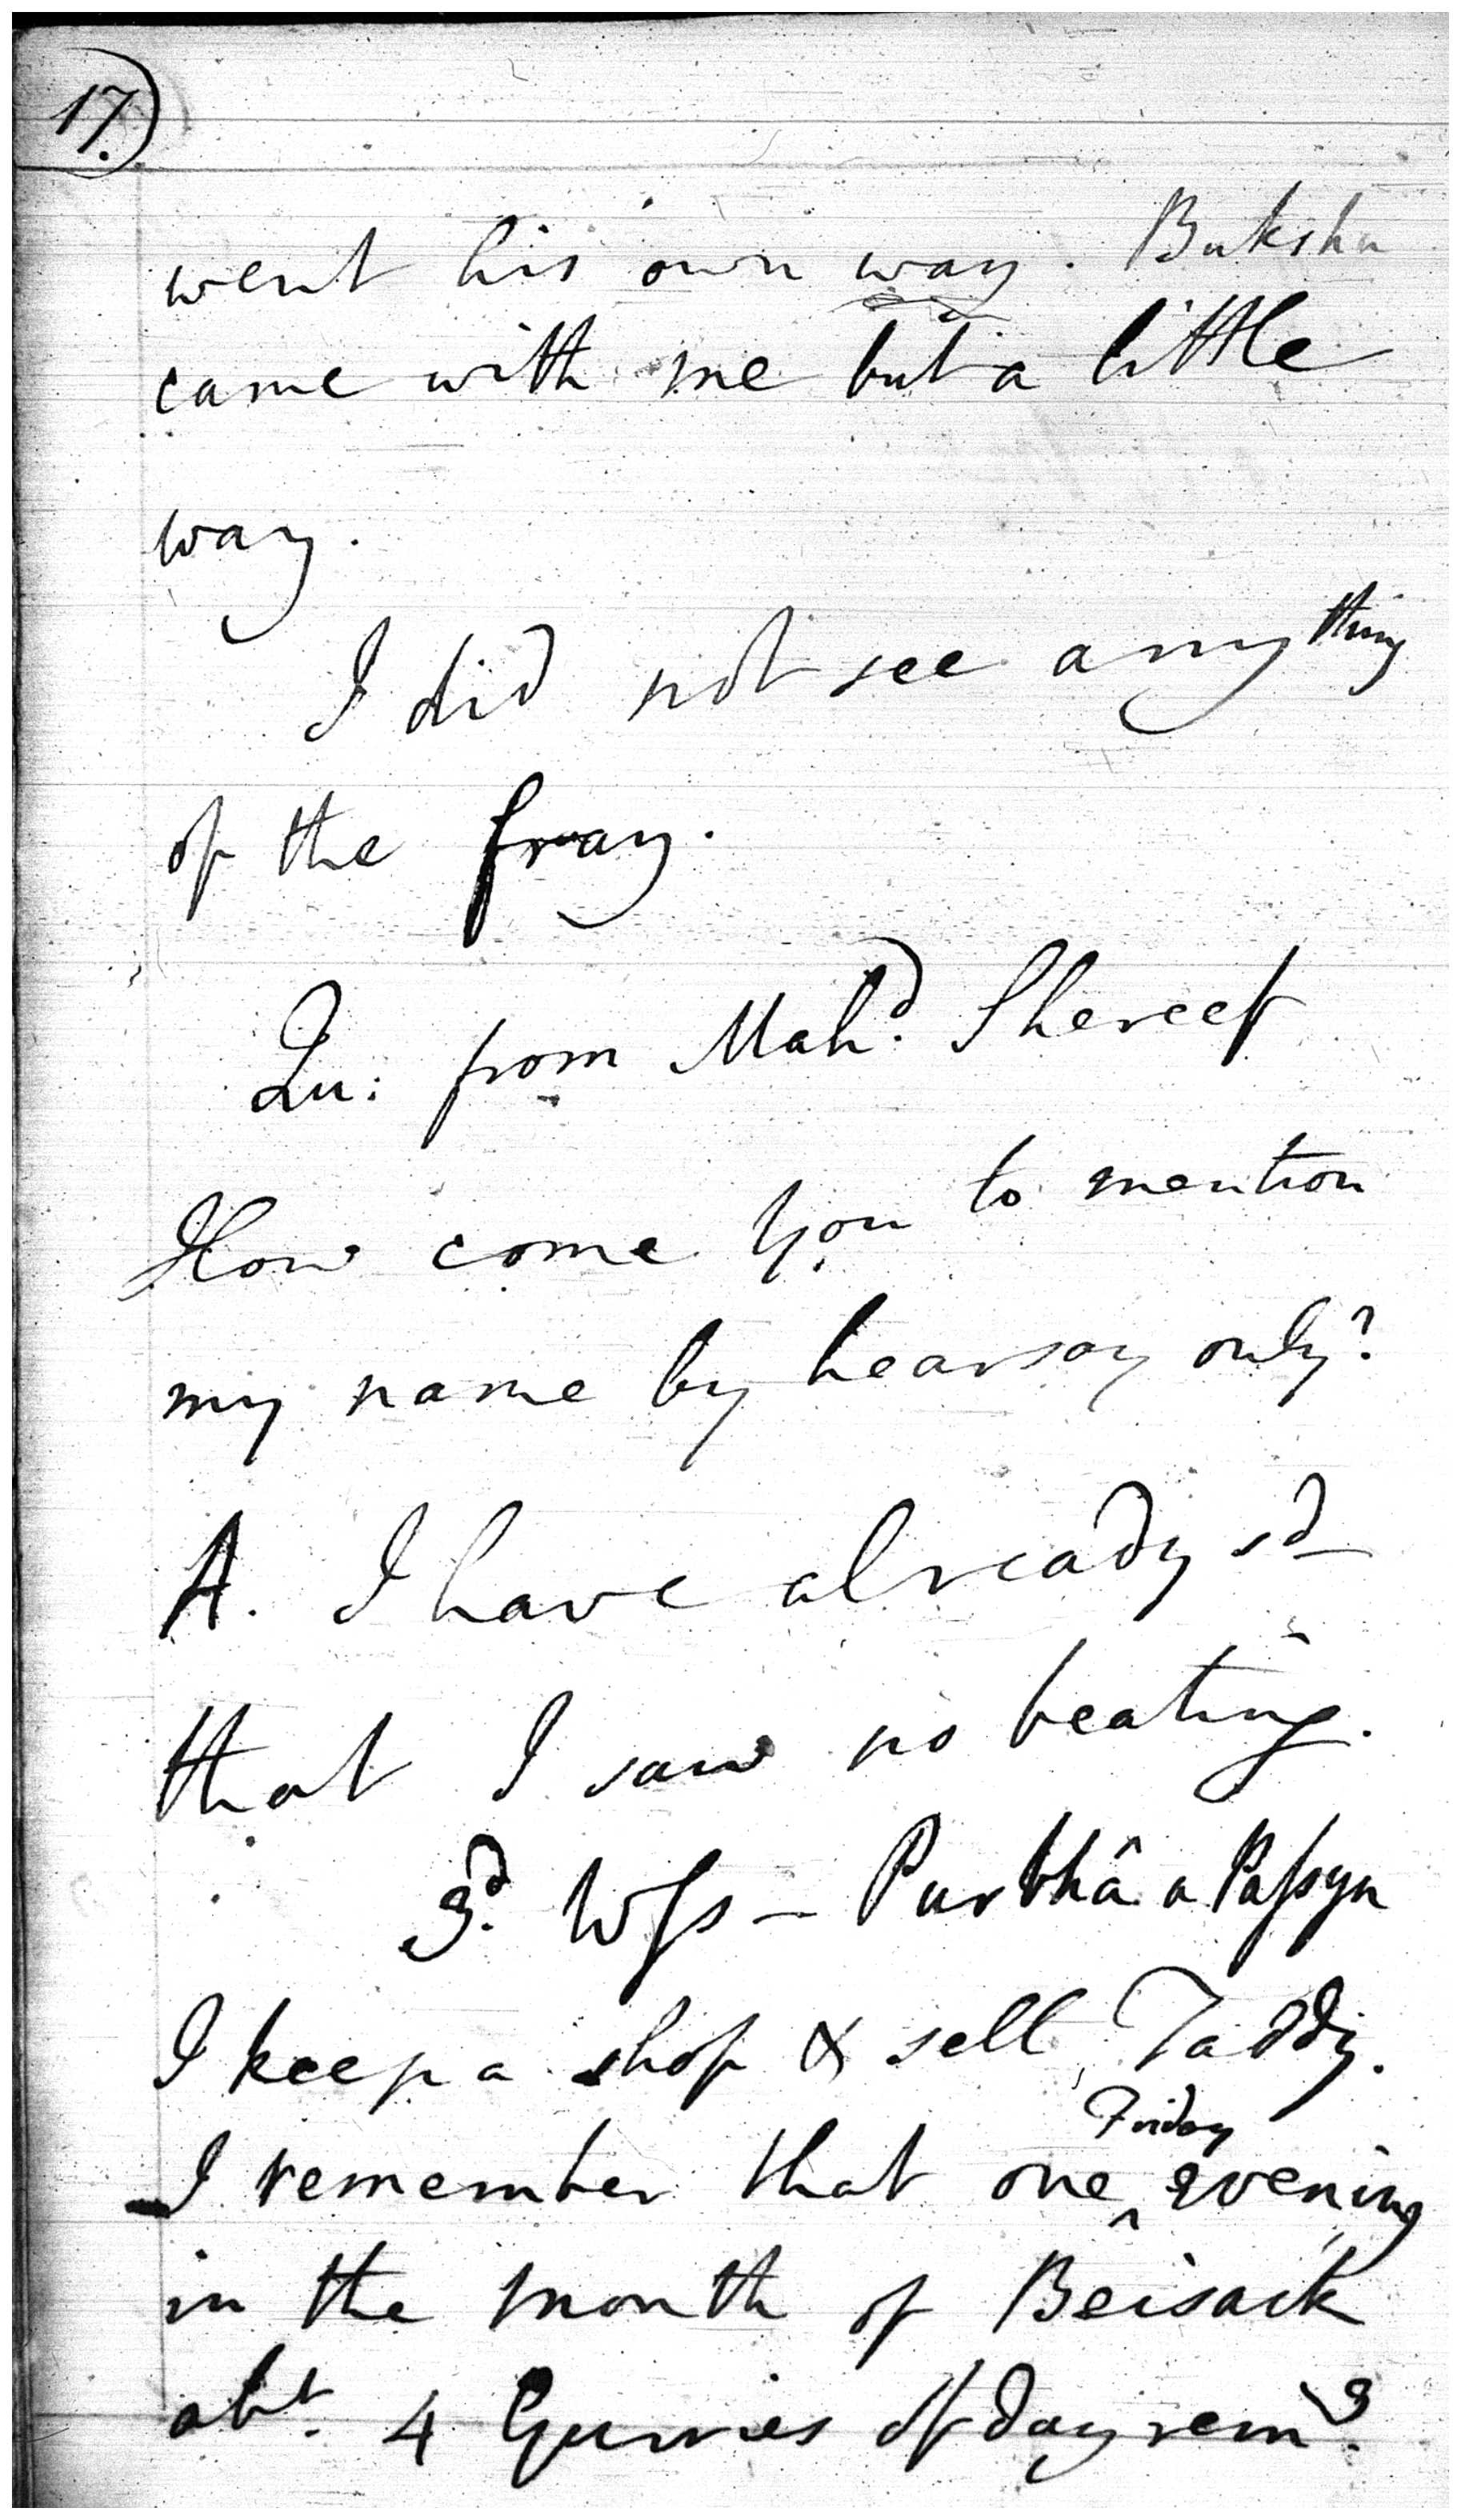 17.
went his own way. Buksha
came with me but a little
way.
I did not see anything
of the fray.
Qu: from Mahd. Shereef
How come you to mention
my name by hearsay only?
A. I have already sd
that I saw no beating.
3d. Wss - Purbhâ a Passyn
I keep a shop & sell Taddy.
I remember that one ^ Friday evening
in the month of Beisack
abt. 4 Gurries of day remg.